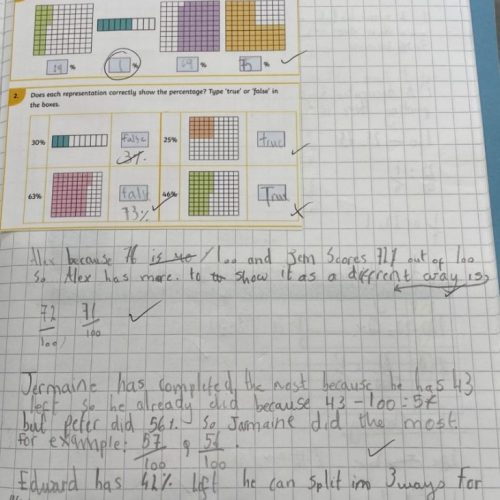 19 % 6 % 69 % 75 %
2. Does each representation correctly show the percentage? Type 'true' or 'false' in
the boxes.
30% false 25% true
3%
63% fals 46% True
73%
Alex because 76 is 40 / 100 and Jem Scores 72% out of 100
So Alex has more. to show it as a different way is
72 71
100 100
Jermaine has completed the most because he has 43
left so he already did because 43 - 100 = 5
but Peter did 56%. So Jarmaine did the most.
For example: 57 , 56 .
100 100
Edward has 42% left he can split in 3 ways For